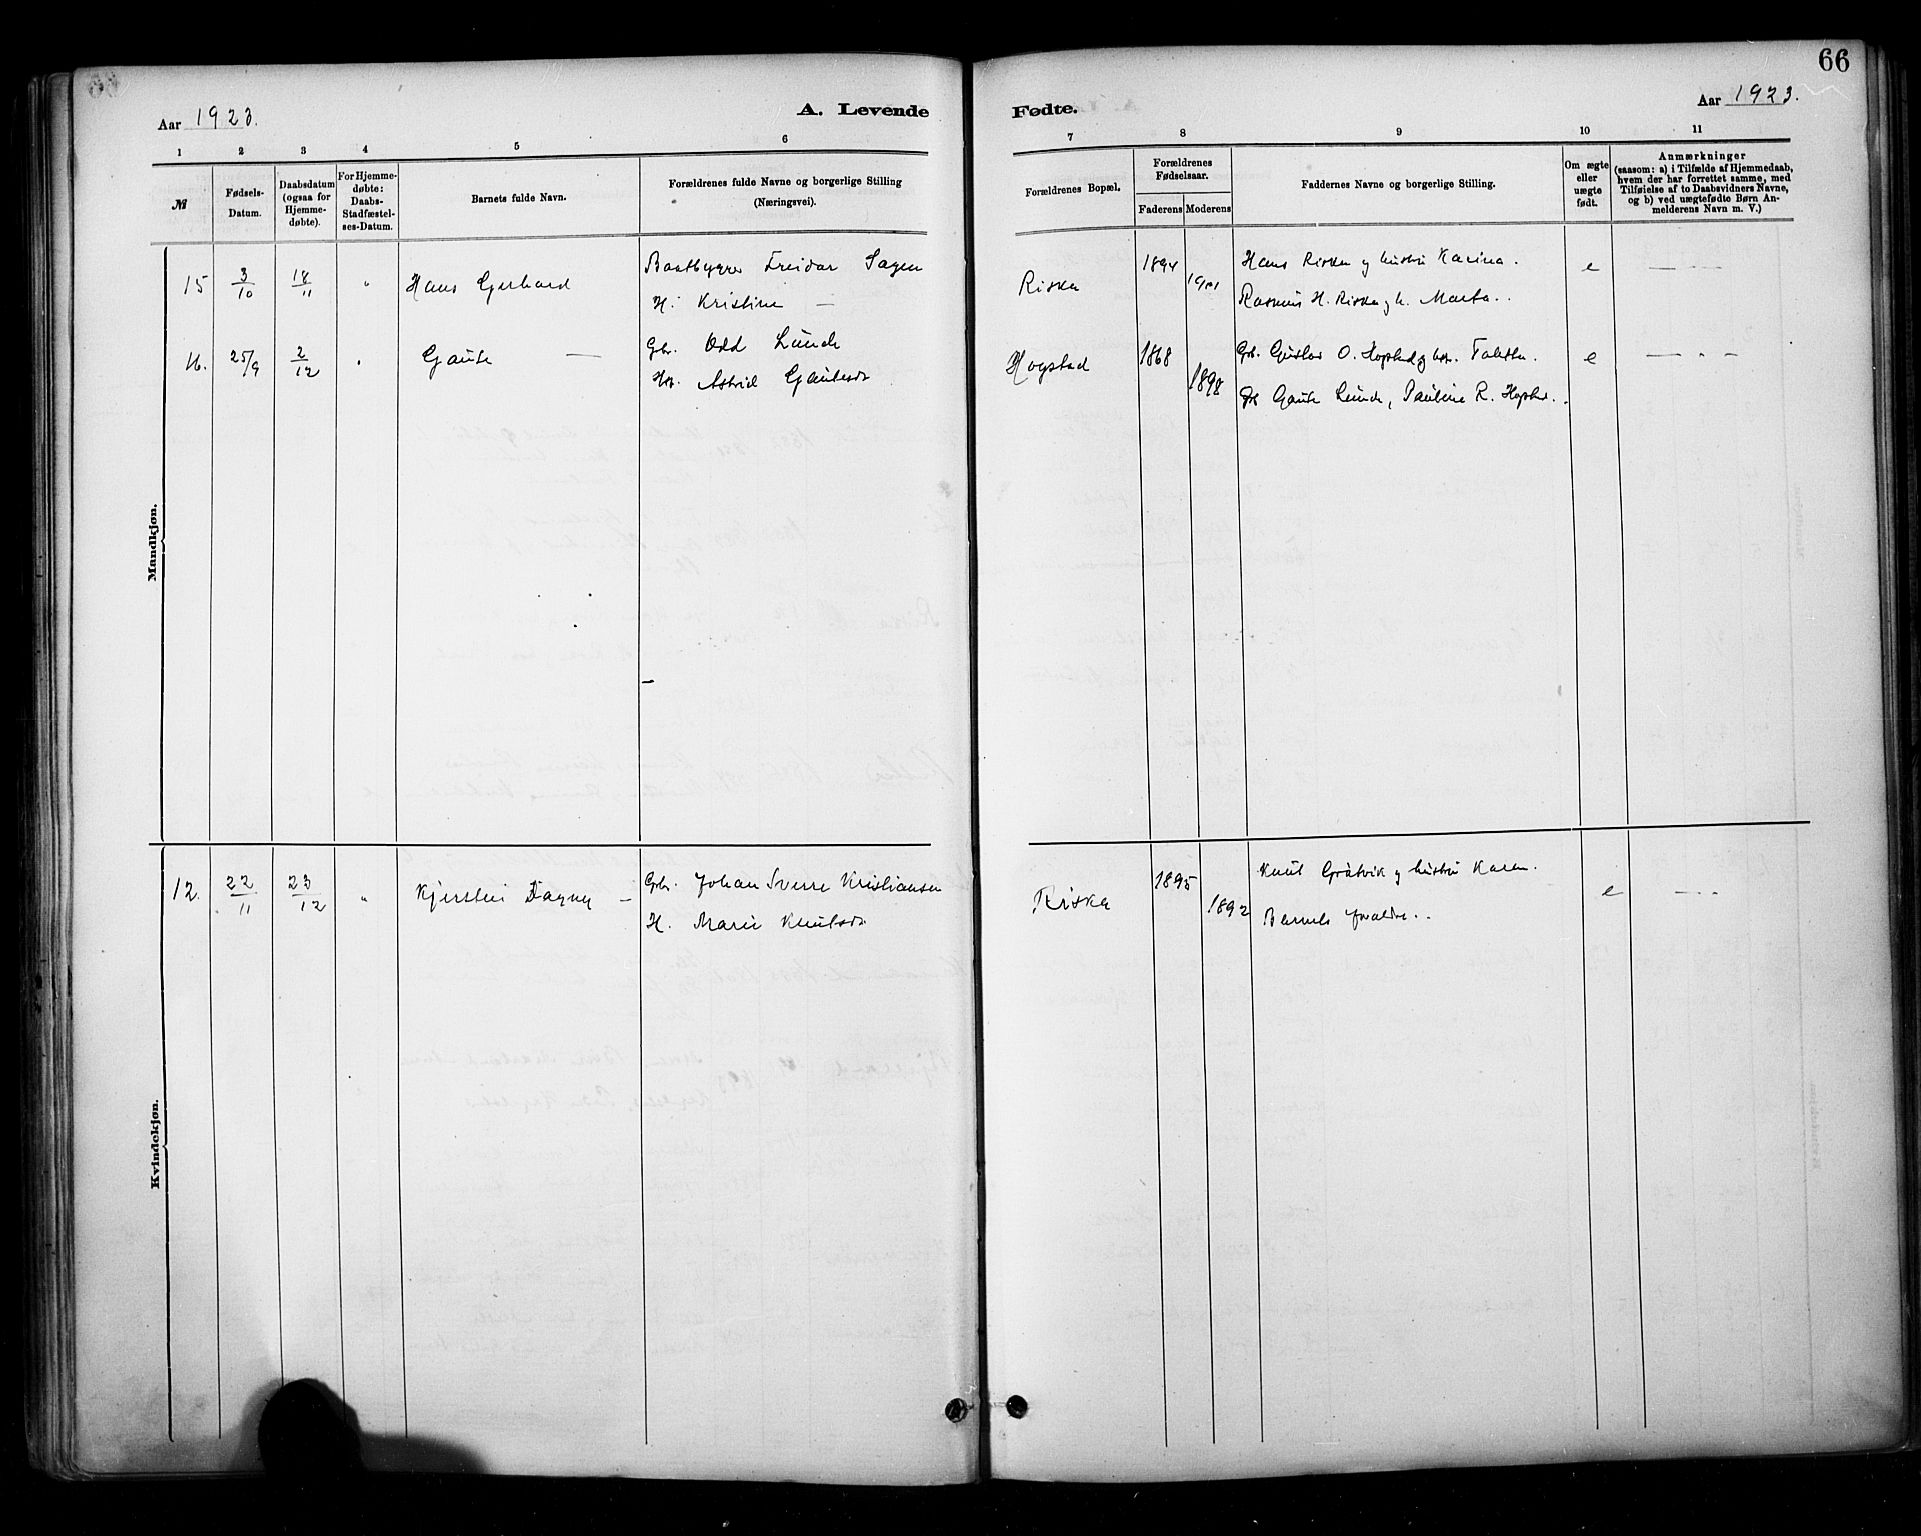 66
Aar 1923.
A. Levende
Fødte.
Aar 1923.
1 2 3 4 5 6 7 8 9 10 11
№
Fødsels-
Datum.
Daabsdatum
(ogsaa for
Hjemme-
døbte).
For Hjemme-
døbte:
Daabs-
Stadfæstel-
ses-Datum.
Barnets fulde Navn.
Forældrenes fulde Navne og borgerlige Stilling
(Næringsvei).
Forældrenes Bopæl.
Forældrenes
Fødselsaar.
Faderens Moderens
Faddernes Navne og borgerlige Stilling.
Om ægte
eller
uægte
født.
Anmærkninger
(saasom: a) i Tilfælde af Hjemmedaab,
hvem der har forrettet samme, med
Tilføielse af to Daabsvidners Navne,
og b) ved uægtefødte Børn An-
melderens Navn m. V.)
Mandkjøn.
15 3/10 18/11 " Hans Gerhard
Baatbygger Freidar Sagen
H. Kristine —
Riska 1894 1901
Hans Riska og hustru Karina.
Rasmus H. Riska og h. Marta.
e — " —
16. 25/9 2/12 " Gaute —
Gbr. Odd Lunde
Hu. Astrid Gautesdr
Hogstad 1868 1898
Gb. Gustav O. Hogstad og
Gb Gaute Lunde, Pauline R.
e — " —
Kvindekjøn.
12. 22/11 23/12 " Kjersten Dagny —
Gbr. Johan Sverre Kristiansen
H. Marie Knutsdr
Riska 1895 1892
Knut Gråtvik og hustru Karen.
Barnets foraldre.
e — " —